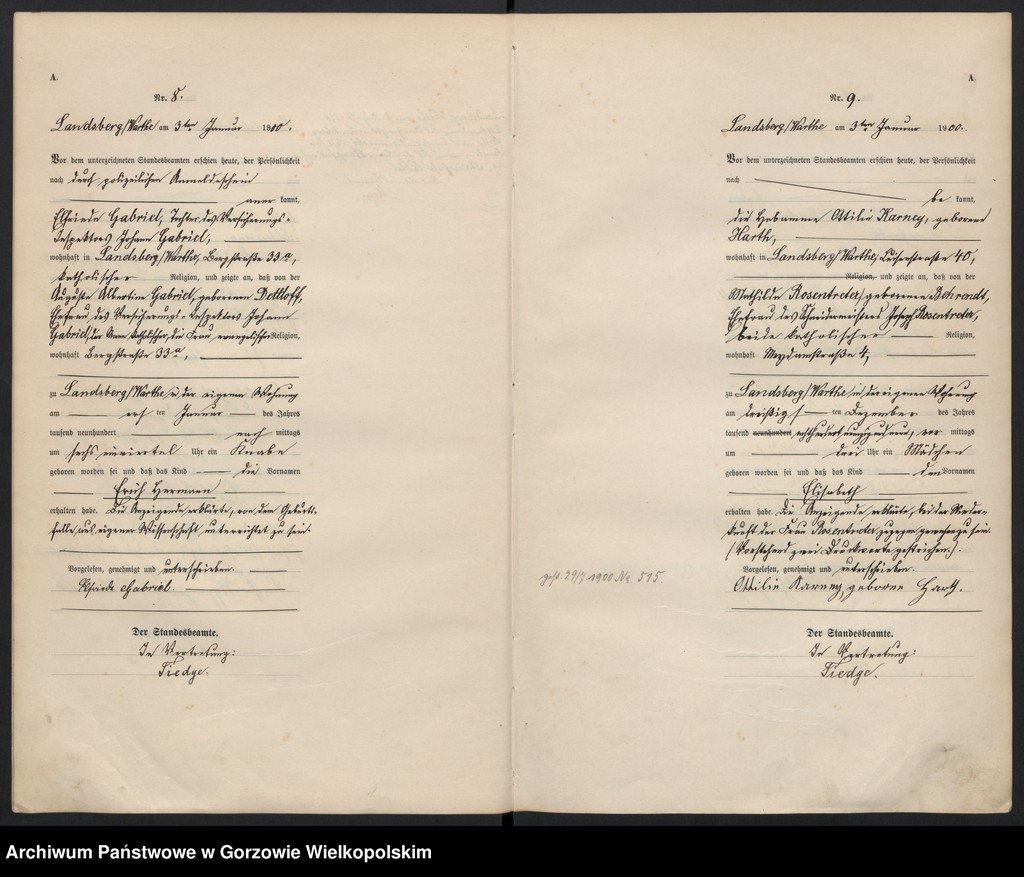 A.
Nr. 8.
Landsberg/Warthe am 3ten Januar 1900.
Vor dem unterzeichneten Standesbeamten erschien heute, der Persönlichkeit
nach durch polizeilichen Anmeldeschein
anerkannt,
Elfriede Gabriel, Tochter des Versicherungs-
Inspektors Johann Gabriel,
wohnhaft in Landsberg/Warthe, Bergstraße 33a,
katholischer Religion, und zeigte an, daß von der
Auguste Albertine Gabriel, geborenen Dettloff,
Ehefrau des Versicherungs-Inspektors Johann
Gabriel, der Mann katholischer, die Frau evangelischer Religion,
wohnhaft Bergstraße 33a,
zu Landsberg/Warthe in der eigenen Wohnung
am ersten Januar des Jahres
tausend neunhundert nachmittags
um sechs einviertel Uhr ein Knabe
geboren worden sei und daß das Kind die Vornamen
Erich Hermann
erhalten habe. Die Anzeigende erklärte, von dem Geburts-
falle aus eigener Wissenschaft unterrichtet zu sein.
Vorgelesen, genehmigt und unterschrieben.
Elfriede Gabriel.
Der Standesbeamte.
In Vertretung:
Tiedge.
A.
Nr. 9.
Landsberg/Warthe am 3ten Januar 1900.
Vor dem unterzeichneten Standesbeamten erschien heute, der Persönlichkeit
nach
bekannt,
die Hebamme Ottilie Karney, geborene
Harth,
wohnhaft in Landsberg/Warthe, Luisenstraße 40,
Religion, und zeigte an, daß von der
Mathilde Rosentreter, geborenen Behrendt,
Ehefrau des Schneidermeisters Joseph Rosentreter,
beide katholischer Religion,
wohnhaft Meydamstraße 4,
zu Landsberg/Warthe in der eigenen Wohnung
am dreißigsten Dezember des Jahres
tausend neunhundert achthundert neunzig und neun, vormittags
um drei Uhr ein Mädchen
geboren worden sei und daß das Kind den Vornamen
Elisabeth
erhalten habe. Die Anzeigende erklärte, bei der Nieder-
kunft der Frau Rosentreter zugegen gewesen zu sein.
(Vorstehend zwei Druckworte gestrichen.)
Vorgelesen, genehmigt und unterschrieben.
Ottilie Karney, geborne Harth.
Der Standesbeamte.
In Vertretung:
Tiedge.
gest. 29/7 1900 Nr. 515
Archiwum Państwowe w Gorzowie Wielkopolskim